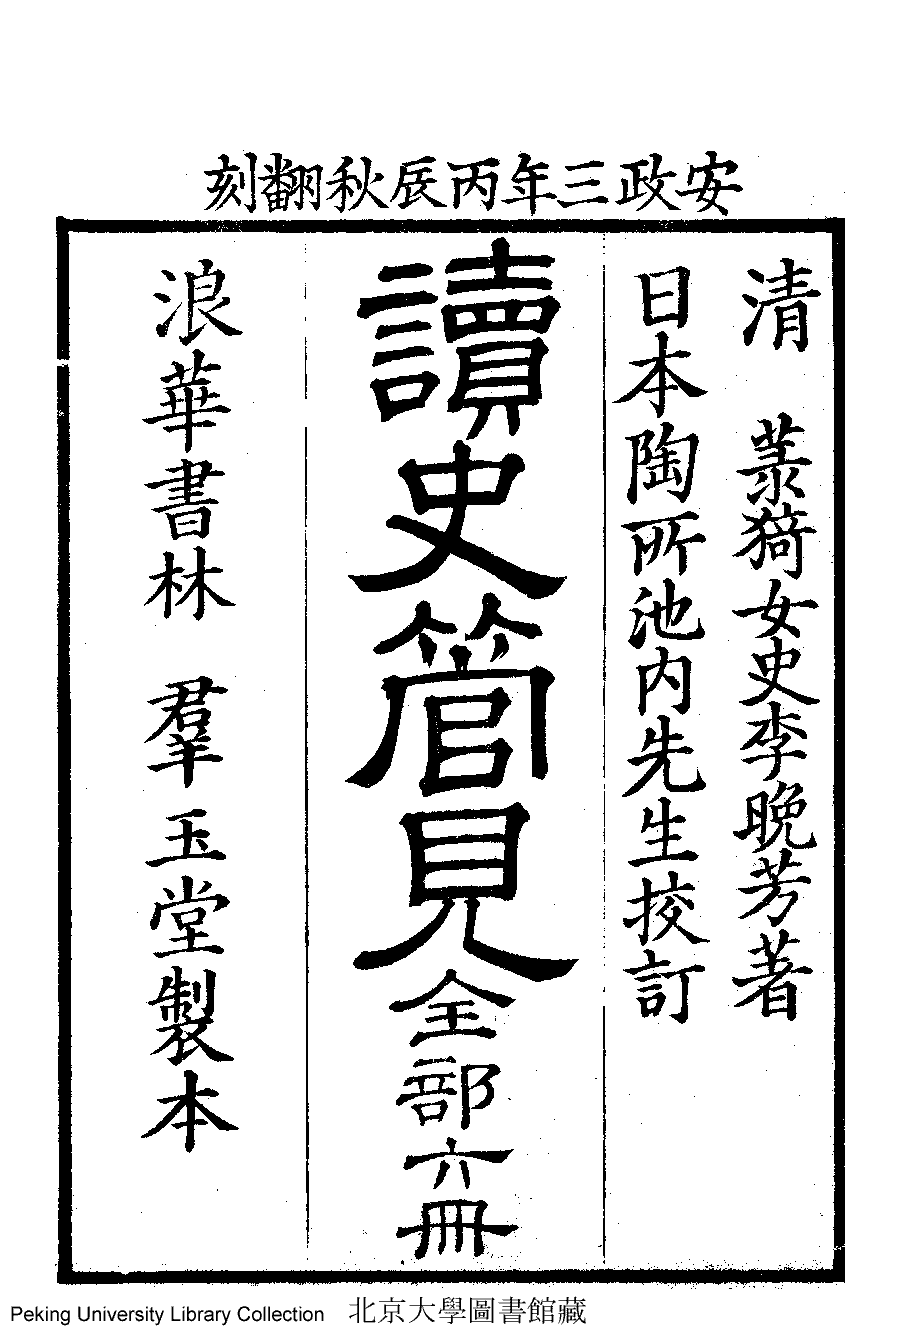 安政三年丙辰秋翻刻
清 菉猗女史李晚芳著
日本陶所池內先生挍訂
讀史管見全部六冊
浪華書林 羣玉堂製本
Peking University Library Collection 北京大學圖書館藏